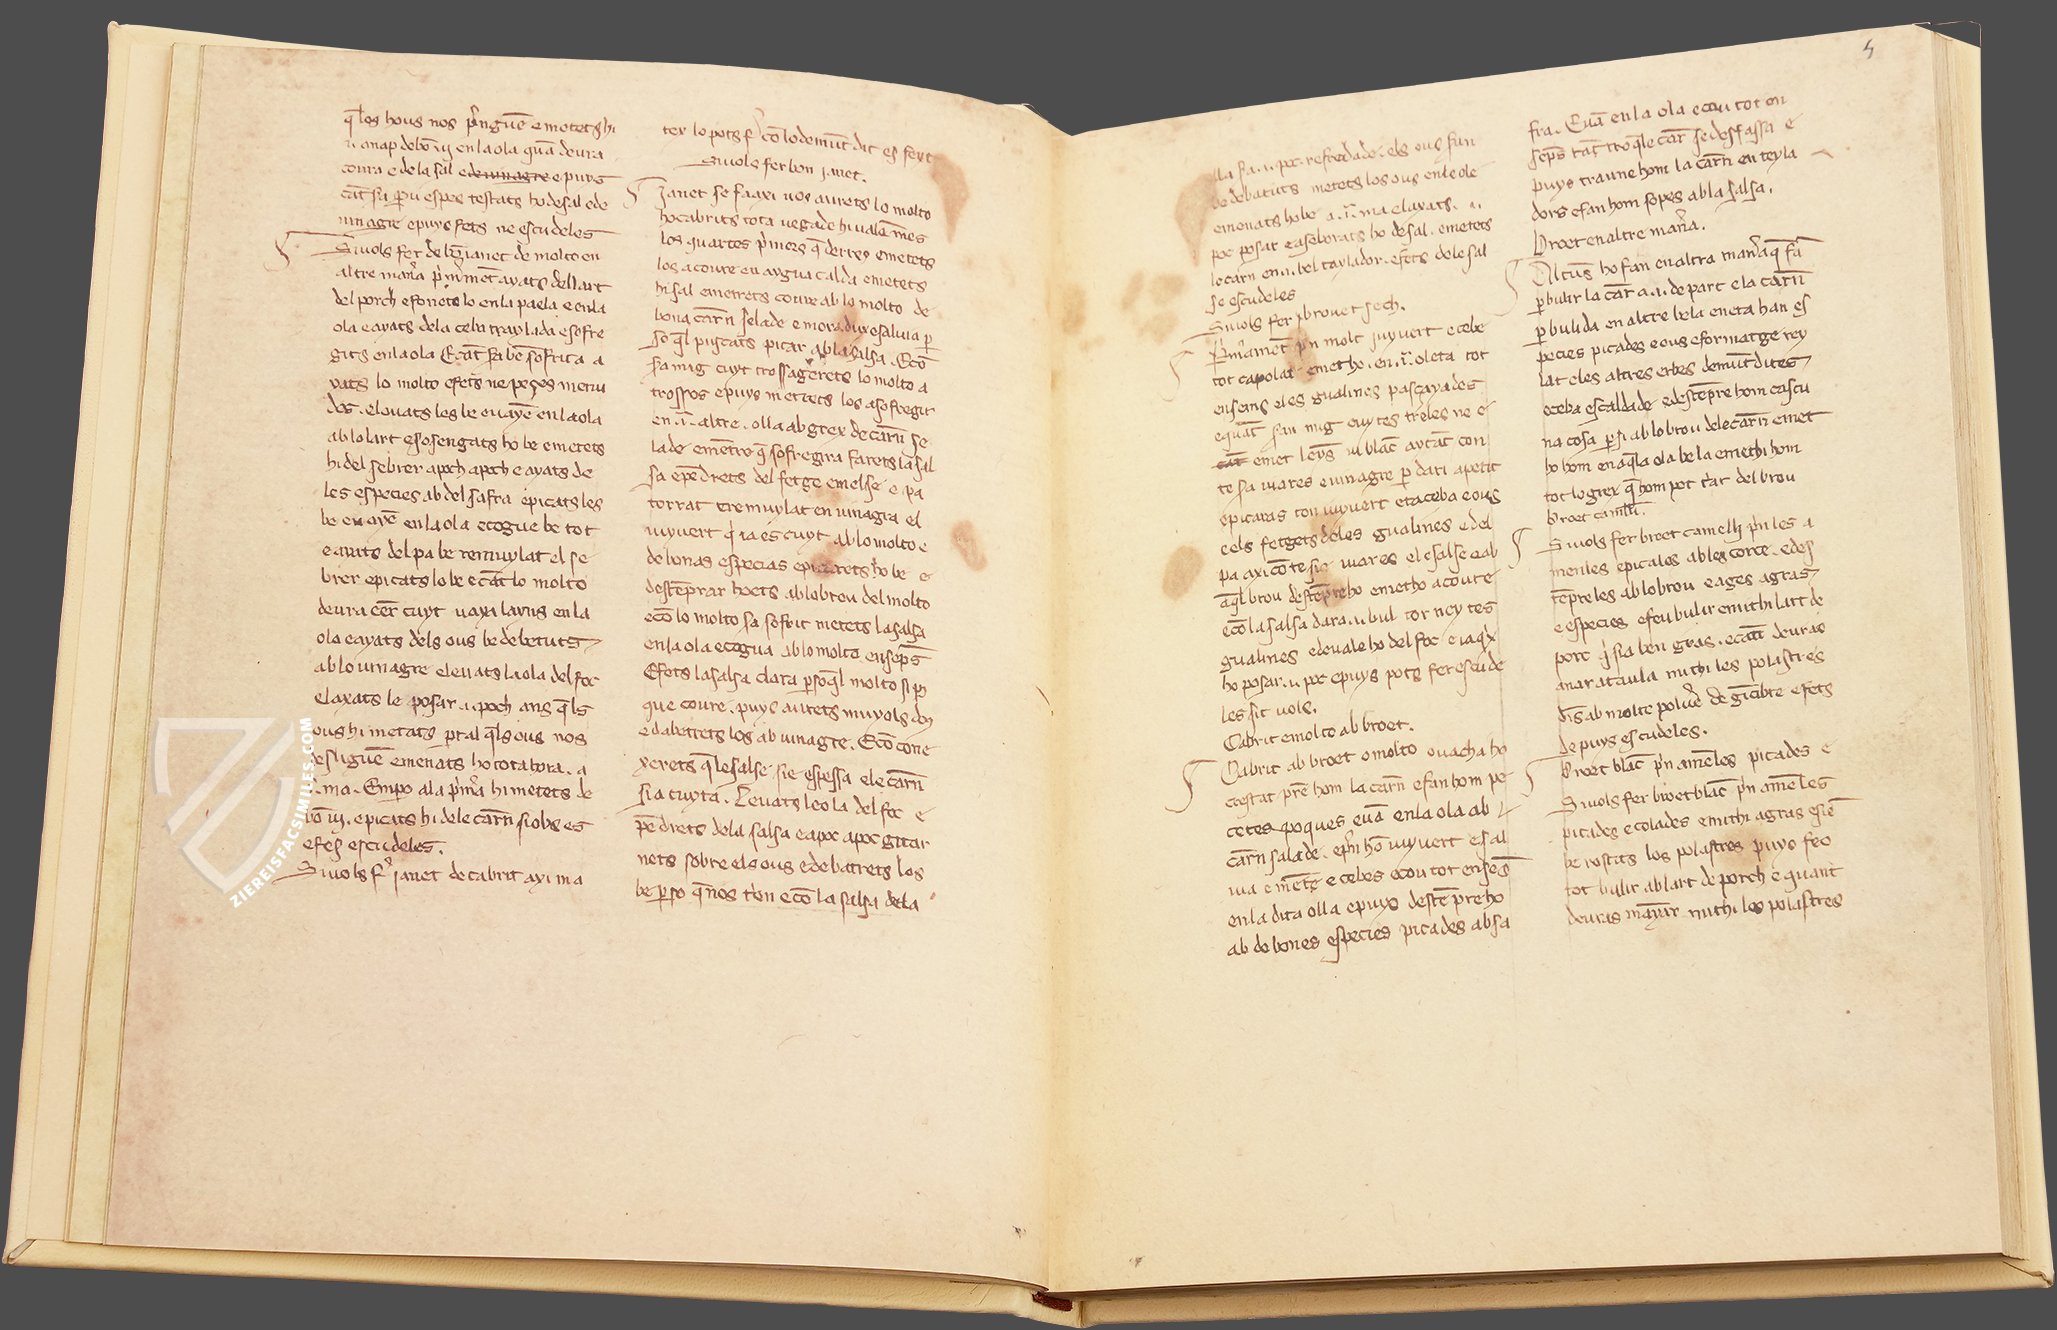 q̄ los hous nos p̄nguē e metets hi
enla ola quā deura
coura e dela sal e de uinagre e puys
uinagre e puys fets ne escudeles
Si uols fer de bō ianet de molto en
altre man̄a p̄m̄amēt ayats del lart
del porch e fonets lo enla paela e enla
ola e ayats dela ceba traylada e sofre
gits enla ola E cāt fa be sofrita a
yats lo molto e fets ne peçes menu
des e leuats les be enayē enla ola
ab lo lart e sosengats ho be e metets
hi del sebrer a poch a poch e ayats de
les especies ab del safra e picats les
be enayē enla ola e cogue be tot
e ayats del pa be remuylat el se
brer e picats lo be e cāt lo molto
deura eēr cuyt uaya la uns en la
ola e ayats dels ous be debetuts
ab lo uinagre e leuats la ola del foc
e laxats le posar .i. poch ans q̄ ls
ous hi metats per tal q̄ ls ous nos
esliguē e menats ho tota hora a
ma. Empo ala p̄m̄a hi metets de
e picats hi dele carn si obs es
e fes escudeles.
Si uols fer ianet de cabrit axi ma
tex lo pots fer cō lo demūt dit es feyt
Si uols fer bon janet.
Janet se fa axi uos aurets lo molto
ho cabrits tota uegade hi ualē mes
los quartes p̄mers q̄ derres e metets
los a coure en aygua calda e metets
hi sal e metrets coure ab lo molto de
bona carn selade e moraduy e saluia p
so q̄l puscats picar ab la salsa. E cō
sa mig cuyt trossagerets lo molto a
trossos e puys metrets los a sofregir
en .i. altre olla ab grex de carn se
lade e mētre q̄ sofregira farets la sal
sa e pēdrets del fetge e melse e pa
torrat tremuylat en uinagra el
iuyuert q̄ ia es cuyt ab lo molto e
de bonas especias e picarets ho be e
destēprar hoets ab lo brou del molto
e cō lo molto sa sofrit metets la salsa
enla ola e cogua ab lo molto ensēps
E fets la salsa clara per so q̄l molto si p
que coure. puys aurets muyols dou
e dabatrets los ab uinagre. E cō cone
xerets q̄ le salse sie espessa e le carn
sia cuyta. Leuats le ola del foc e
pēdrets dela salsa e a poc a poc gitar
nets sobre els ous e debatrets los
be per so q̄ nos tōn e cō la salsa dela
lla sa .i. poc refredade els ous sun
be debatuts metets los ous en le ole
e menats ho be a .i. ma e laxats .i.
poc posar e asaborats ho de sal e metets
le carn en .i. bel taylador e fets dele sal
se escudeles
Si uols fer .j. brouet sech.
P̄m̄amēt p̄n molt juyuert e cebe
tot capolat e met ho en .i. oleta tot
ensems e les gualines pasçayades
e quāt san mig cuytes tre les ne e
cāt e met lēys ui blāc aytāt con
te sa uiares e uinagre p dari apetit
e picaras ton iuyuert e ta ceba e ous
e els fetgets deles gualines e del
pa axi cō te sia uiares e le salse e ab
aq̄l brou destēpre ho e met ho a coure
e cō la salsa dara .i. bul tor ney tes
gualines e deuale ho del foc e iaq̄x
ho posar .i. poc e puys pots fer escude
les sit uols.
Cabrit e molto ab broet.
Cabrit ab broet o molto o uacha ho
crestat prē hom la carn e fan hom pe
cetes poques e uā enla ola ab
carn salade. e p̄n hō iuyuert e sal
uia e mēte e cebes e cou tot ensēs
en la dita olla e puys destēpre ho
ab de bones especies picades ab sa
fra. E uā en la ola e cou tot en
sēps tāt tro q̄ le carn se desfassa e
puys traune hom la carn en teyla
dors e fan hom sopes ab la salsa.
Broet en altre man̄a.
Alcūs ho fan en altra man̄a q̄ fā
p bulir la carn a .i. de part e la carn
p bulida en altre bela eneta han es
pecies picades e ous e formatge rey
lat e les altres erbes demūt dites
e ceba escaldade e destēpre hom cascu
na cosa p si ab lo brou dele carn e met
ho hom en aq̄la ola bela e met hi hom
tot lo grex q̄ hom pot trar del brou
broet camlī.
Si uols fer broet camelī p̄n les a
menles e picales ab les corce e des
tēpre les ab lo brou e ages agras
e especies e feu bulir e mit hi lart de
porc q̄ sia ben gras. e cāt deuras
anar a taula mit hi les polastres
dīs ab molte poluē de gīnbre e fets
de puys escudeles.
Broet blāc p̄n amēles picades e
Si uols fer broet blāc p̄n amēles
picades e colades e mit hi agras e siē
be rostits los polastres puys feo
tot bulir ab lart de porch e quant
deuras manyar mit hi los polastres
ZIEREISFACSIMILES.COM